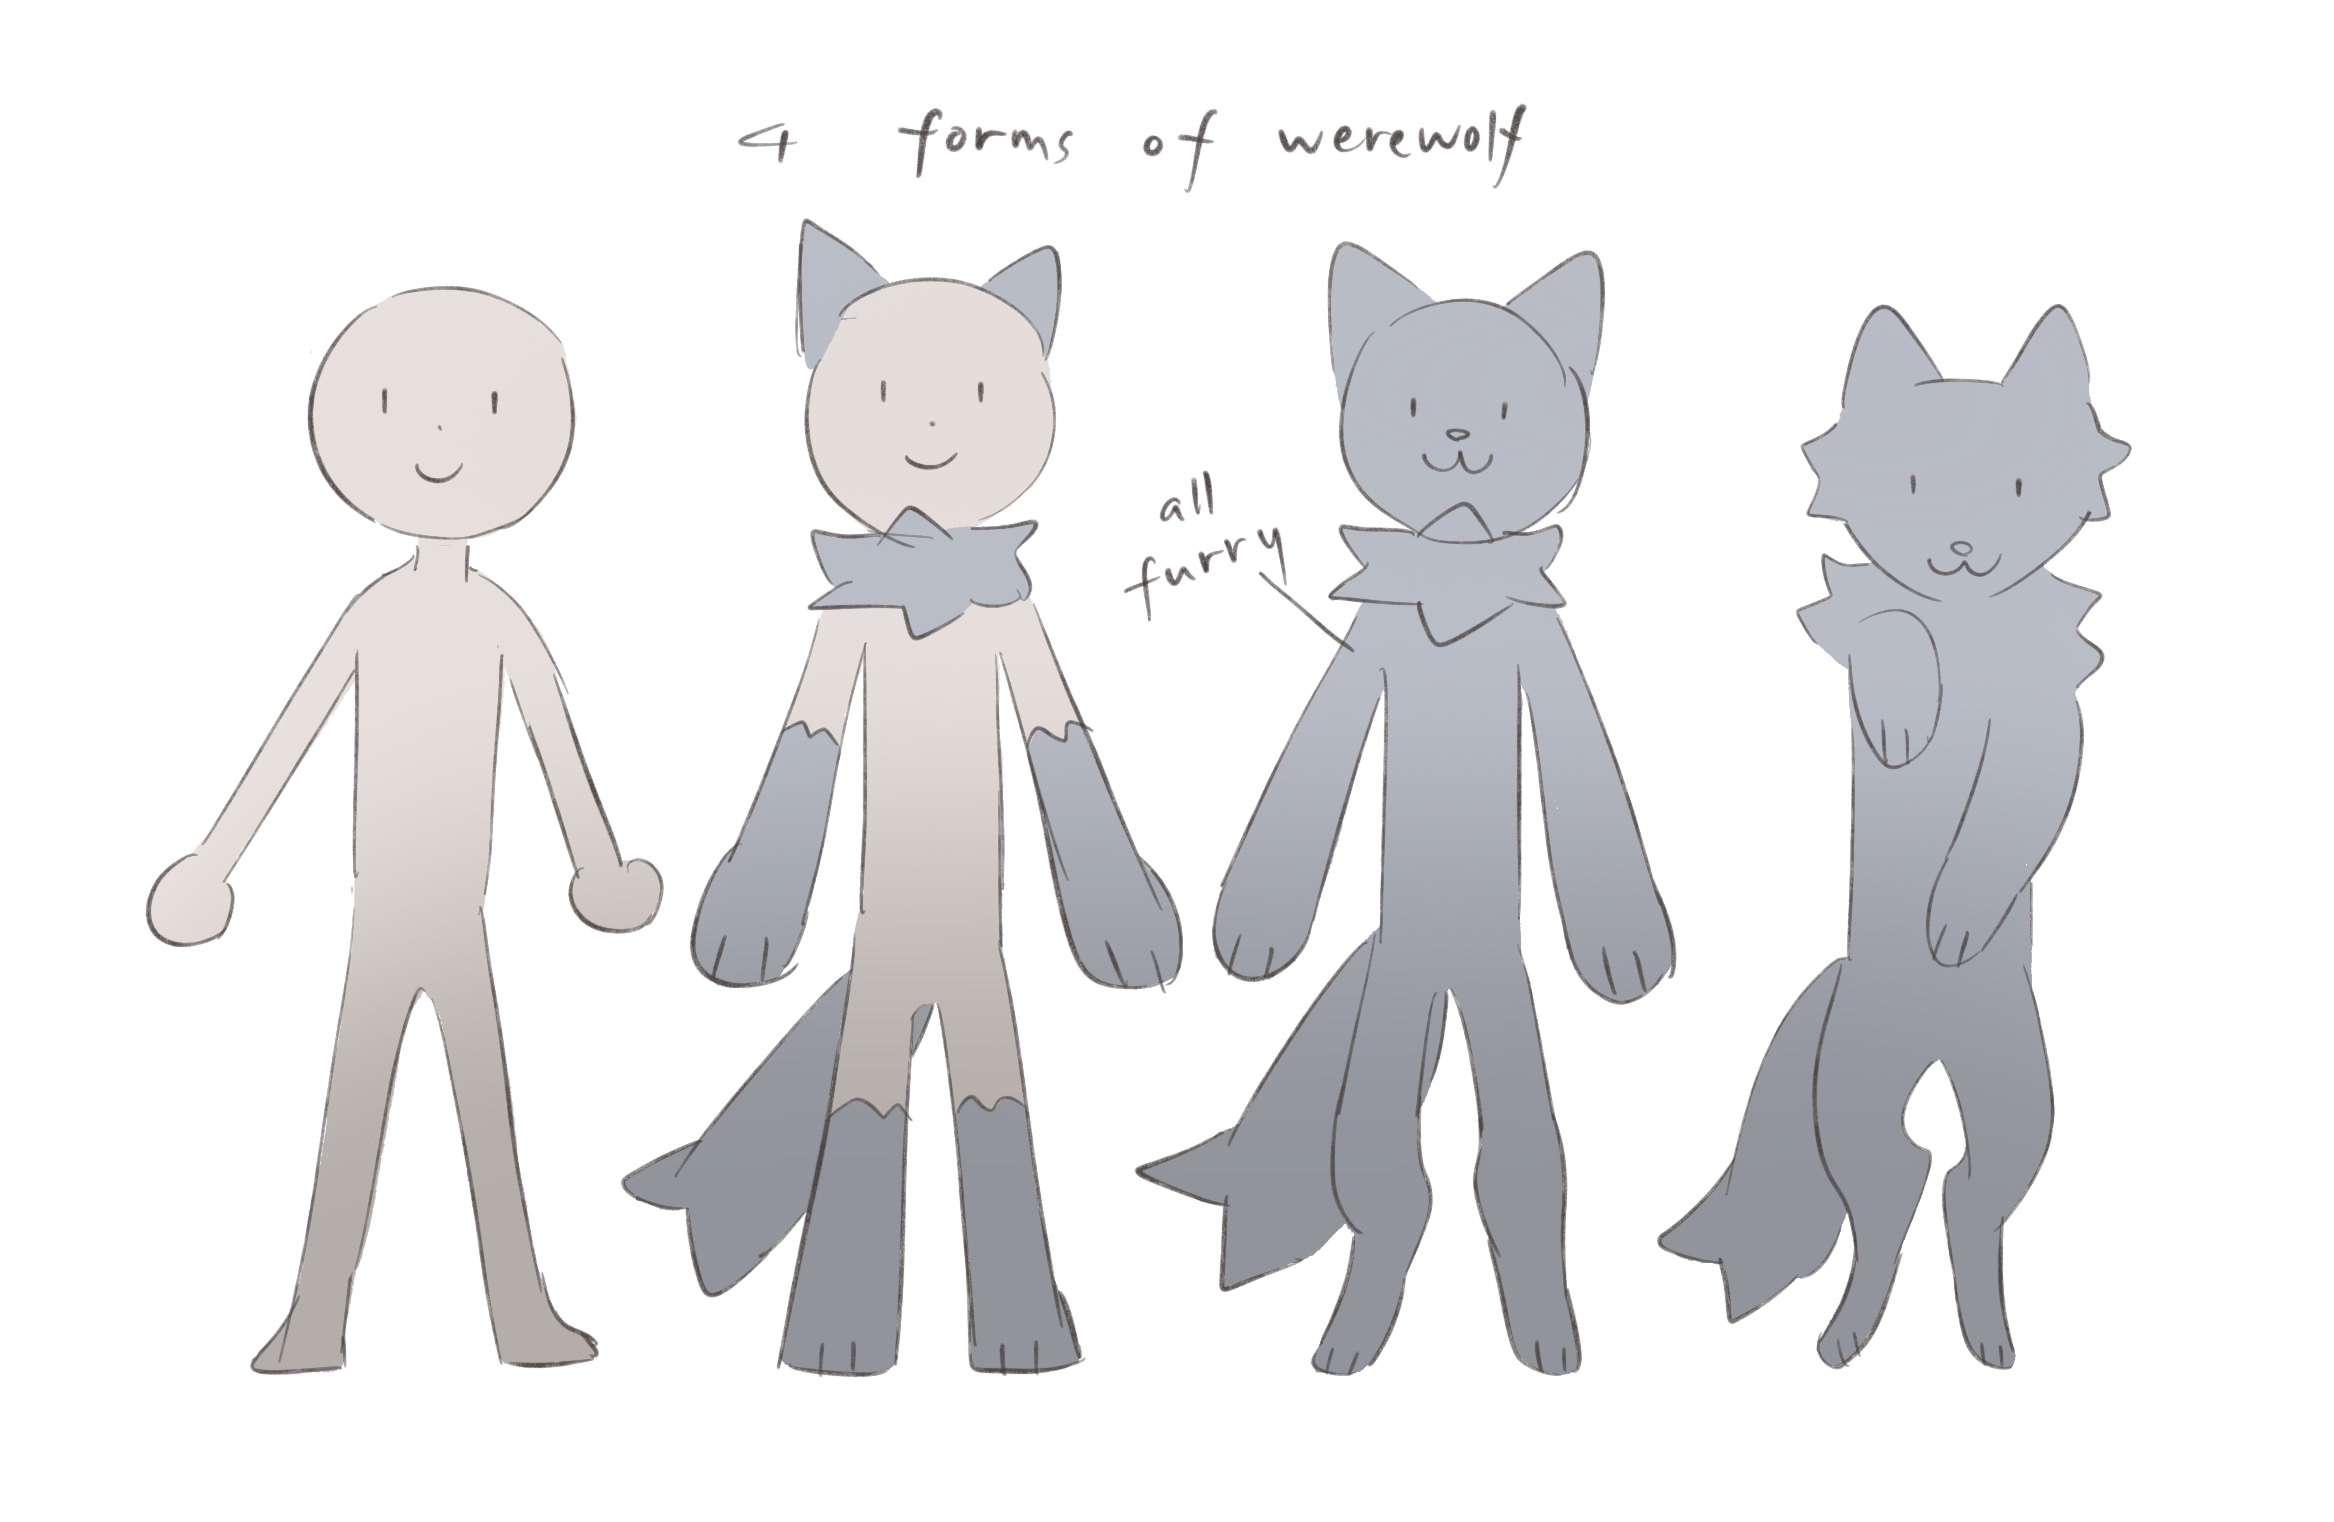 4 forms of werewolf
all
furry